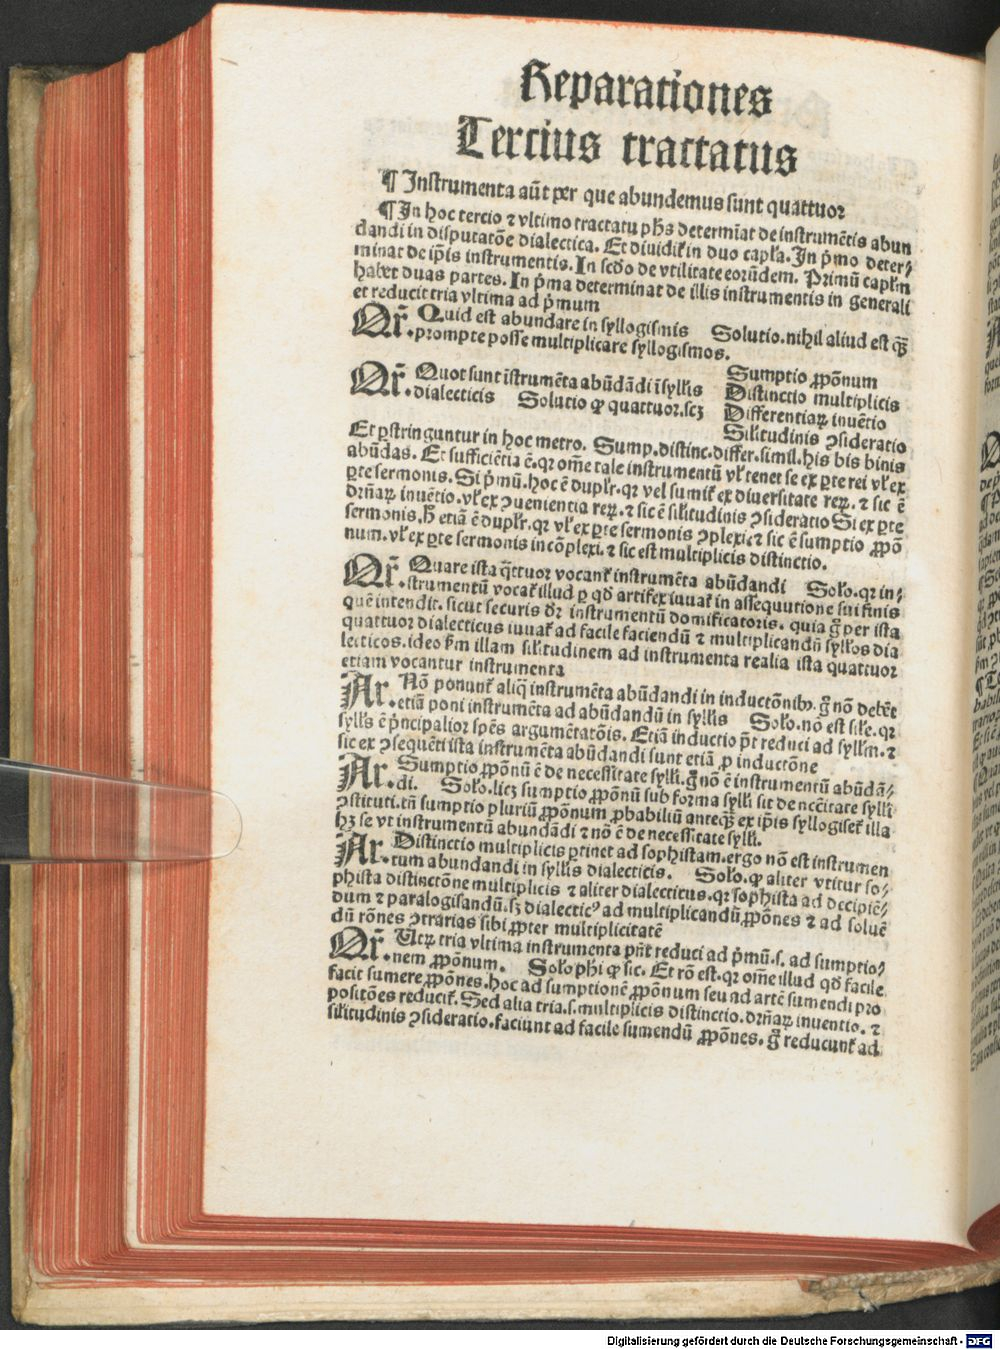 Reparationes
Tercius tractatus
¶ Instrumenta aūt per que abundemus sunt quattuor
¶ In hoc tercio ⁊ vltimo tractatu ph̄s determīat de instrumētis abun
dandi in disputatōe dialectica. Et diuidit᷑ in duo capl'a. In p̄mo deter⸗
minat de ip̄is instrumentis. In sedō de vtilitate eorūdem. Primū capl'm
habet duas partes. In p̄ma determinat de illis instrumentis in generali
et reducit tria vltima ad p̄mum
Qr̄. Quid est abundare in syllogismis Solutio. nihil aliud est q̄ꝫ
prompte posse multiplicare syllogismos.
Qr̄. Quot sunt īstrumēta abūdādi ī syll'is
dialecticis Solutio ꝙ quattuor. scꝫ
Sumptio ꝓpōnum
Distinctio multiplicis
Differentiaꝝ inuētio
Sil'itudinis ꝯsideratio
Et ꝑstringuntur in hoc metro. Sump. distinc. differ. simil. his bis binis
abūdas. Et sufficiētia ē. qꝛ om̄e tale instrumentū vl' tenet se ex ꝑte rei vl' ex
ꝑte sermonis. Si p̄mū. hoc ē dupl'r. qꝛ vel sumit᷑ ex diuersitate reꝝ. ⁊ sic ē
dr̄iaꝝ inuētio. vl' ex ꝯuenientia reꝝ. ⁊ sic ē sil'itudinis ꝯsideratio Si ex ꝑte
sermonis. h̄ etiā ē dupl'r. qꝛ vl' ex ꝑte sermonis ꝯplexi. ⁊ sic ē sumptio ꝓpō
num. vl' ex ꝑte sermonis incōplexi. ⁊ sic est multiplicis distinctio.
Qr̄. Quare ista q̄ttuor vocant᷑ instrumēta abūdandi Solo. qꝛ in⸗
strumentū vocat᷑ illud ꝑ qd̄ artifex iuuat᷑ in assequutione sui finis
quē intendit. sicut securis dr̄ instrumentū domificatoris. quia g̊ per ista
quattuor dialecticus iuuat᷑ ad facile faciendū ⁊ multiplicandū syll'os dia
lecticos. ideo s̄m illam sil'itudinem ad instrumenta realia ista quattuor
etiam vocantur instrumenta
Ar. Nō ponunt᷑ aliq̄ instrumēta abūdandi in inductōnibꝫ. g̊ nō debēt
etiā poni instrumēta ad abūdandū in syll'is Solo. nō est sil'e. qꝛ
syll's ē p̄ncipalior spēs argumētatōis. Etiā inductio p̄t reduci ad syll'm. ⁊
sic ex ꝯsequēti ista instrumēta abūdandi sunt etiā ꝓ inductōne
Ar. Sumptio ꝓpōnū ē de necessitate syll'i. g̊ nō ē instrumentū abūdā⸗
di. Solo. licꝫ sumptio ꝓpōnū sub forma syll'i sit de nccitate syll'i
ꝯstituti. tn̄ sumptio pluriū ꝓpōnum ꝓbabiliū anteqꝫ ex ip̄is syllogiset᷑ illa
hꝫ se vt instrumentū abundādi ⁊ nō ē de necessitate syll'i.
Ar. Distinctio multiplicis ꝑtinet ad sophistam. ergo nō est instrumen
tum abundandi in syll'is dialecticis. Solo. ꝙ aliter vtitur so⸗
phista distinctōne multiplicis ⁊ aliter dialecticus. qꝛ sophista ad decipiē⸗
dum ⁊ paralogisandū. sꝫ dialecticꝰ ad multiplicandū ꝓpōnes ⁊ ad soluē
dū rōnes ꝯtrarias sibi ꝓpter multiplicitatē
Qr̄. Utꝝ tria vltima instrumenta pn̄t reduci ad p̄mū. s. ad sumptio⸗
nem ꝓpōnum. Solo phi ꝙ sic. Et rō est. qꝛ om̄e illud qd̄ facile
facit sumere ꝓpōnes. hoc ad sumptionē ꝓpōnum seu ad artē sumendi pro
positōes reducit᷑. Sed alia tria. s. multiplicis distinctio. dr̄iaꝝ inuentio. ⁊
sil'itudinis ꝯsideratio. faciunt ad facile sumendū ꝓpōnes. g̊ reducunt᷑ ad
Digitalisierung gefördert durch die Deutsche Forschungsgemeinschaft - DFG